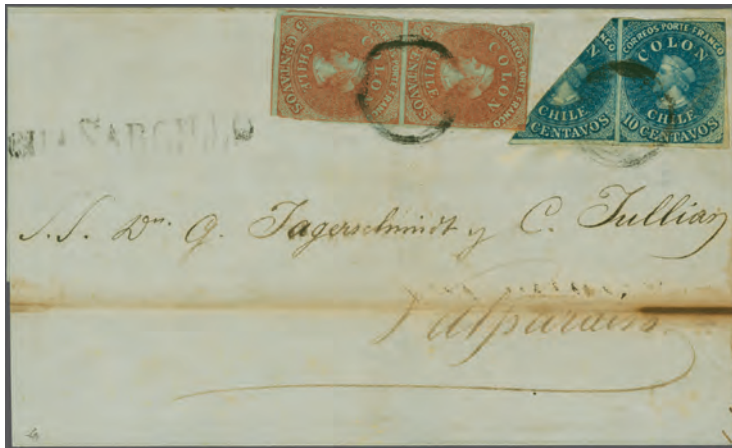 CORREOS PORTE FRANCO
COLON
CHILE
5 CENTAVOS
CORREOS PORTE FRANCO
COLON
CHILE
5 CENTAVOS
CHILE
CENTAVOS
CORREOS PORTE FRANCO
COLON
CHILE
10 CENTAVOS
S.S. Dn. G. Jagerschmidt y C. Jullian
Valparaiso